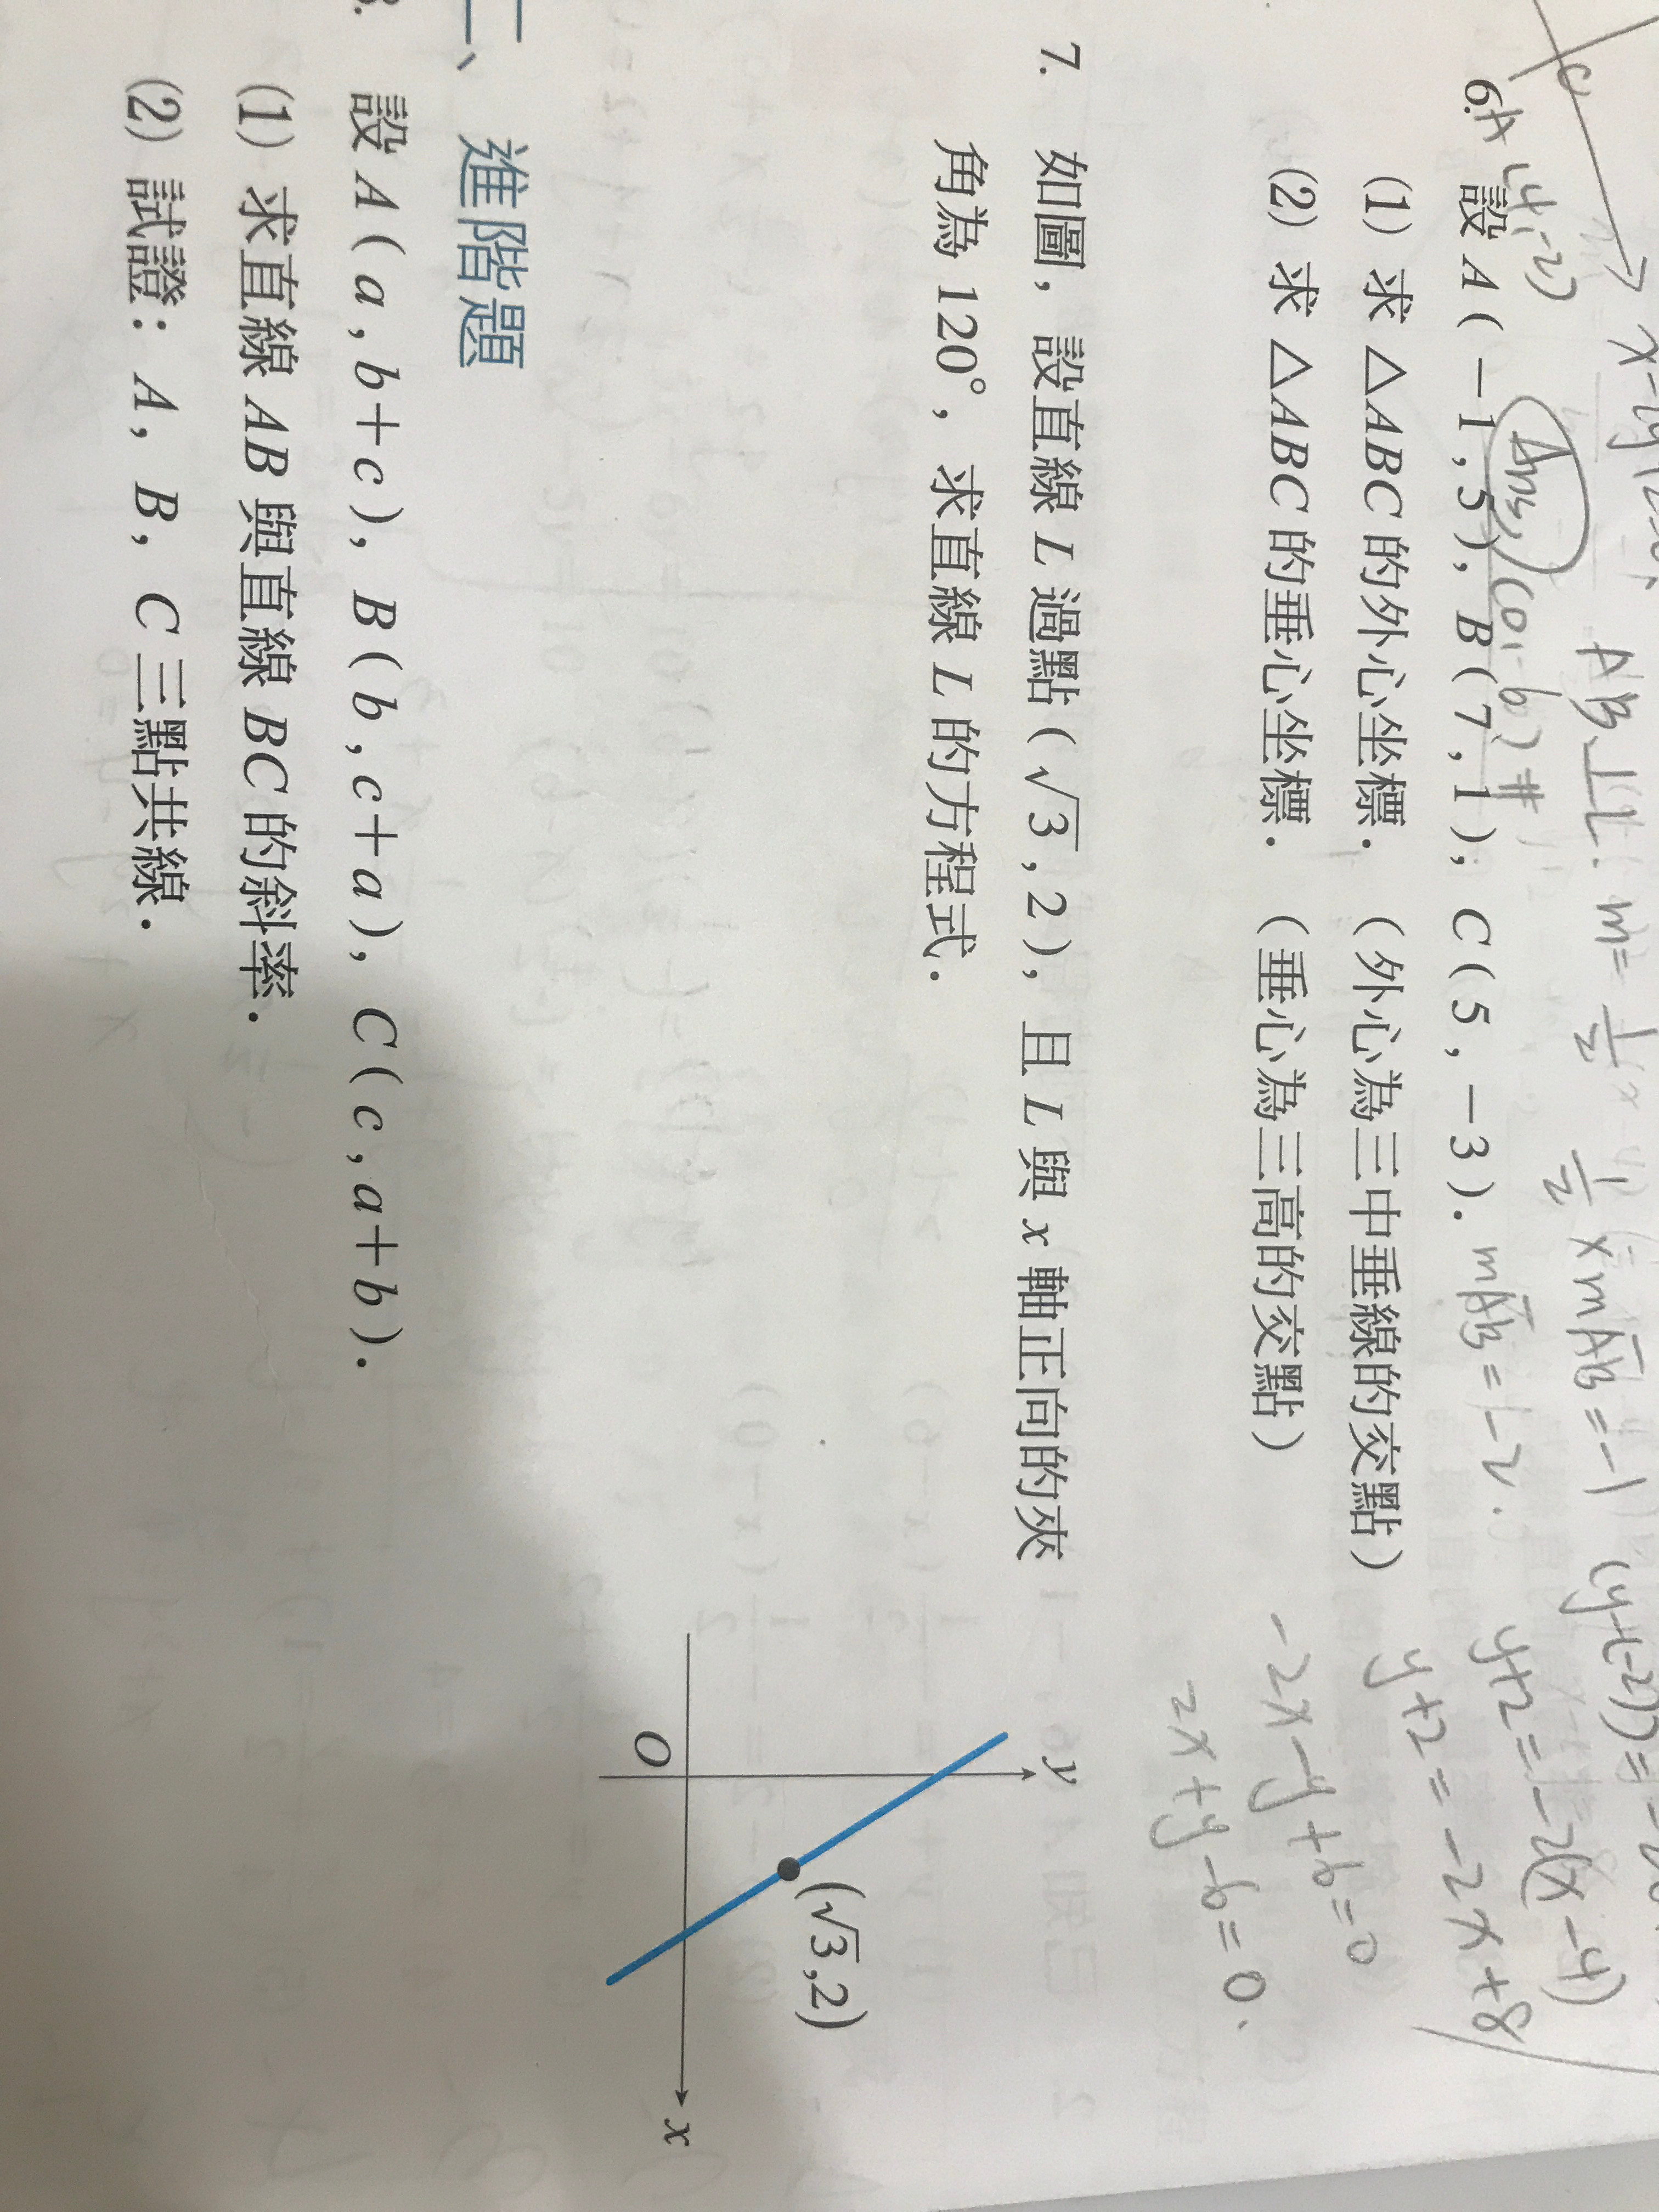 x-2y
AB⊥L.  m=1/2  1/2 x mAB=-1  (y-(-2))=
A(4,-2)  Ans, (0,6)#  mAB=-2.  y+2=-2(x-4)
6. 設 A(-1,5), B(7,1), C(5,-3).  y+2=-2x+8
(1) 求 △ABC 的外心坐標. (外心為三中垂線的交點)  -2x-y+6=0
(2) 求 △ABC 的垂心坐標. (垂心為三高的交點)  2x+y-6=0.
7. 如圖, 設直線 L 過點(√3,2), 且 L 與 x 軸正向的夾
角為 120°, 求直線 L 的方程式.
y
(√3,2)
O
x
二、進階題
設 A(a,b+c), B(b,c+a), C(c,a+b).
(1) 求直線 AB 與直線 BC 的斜率.
(2) 試證: A, B, C 三點共線.